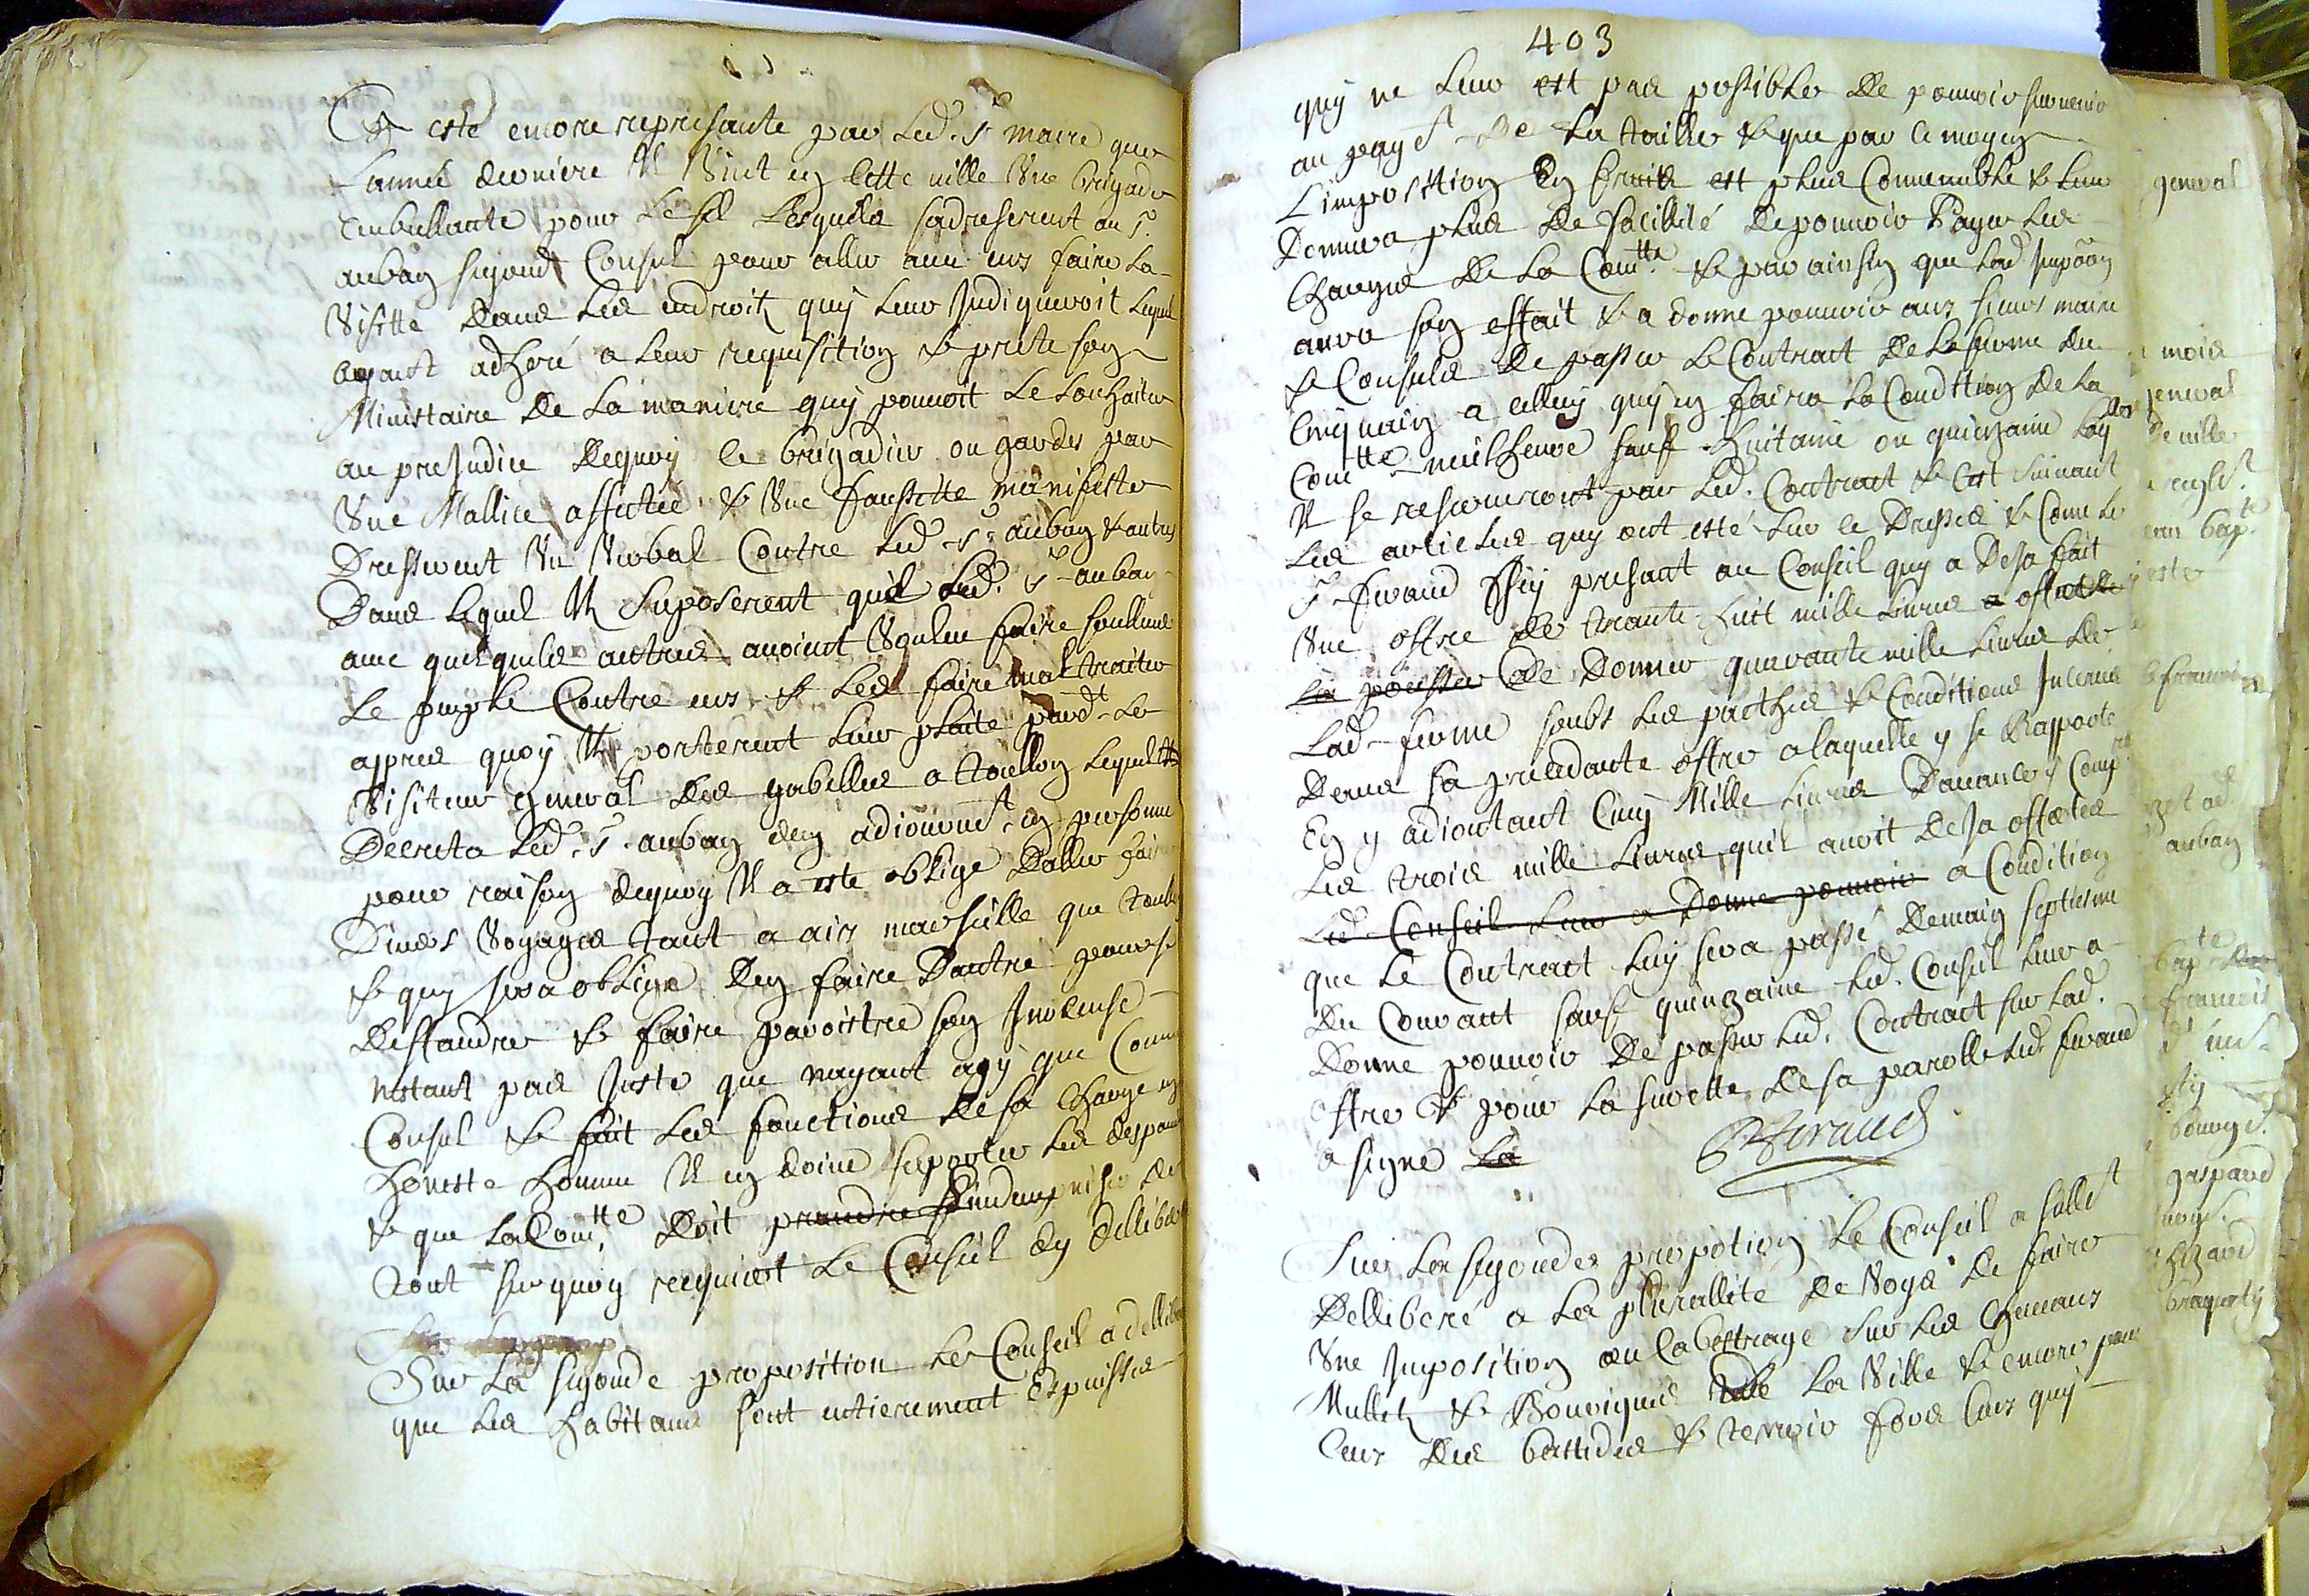 A esté encore represanté par led. Sr maire que
Lannée derniere Il Vint en Cette ville Vne brigade
embullante pour Le sel Lesquels sadreserent au Sr.
auban segond Consul pour aller auec eux faire La
Visitte dans Les endroitz quy Leur Jndiqueroit Lequel
ayant adheré a Leur requisition & preté son
Ministaire de La maniere quy pouuoit Le souhaiter
au preJudice dequoy le brigadier ou gardes par
Vne Mallice affectée & Vne faussette manifeste
Dresserent Vn Verbal Contre led. Sr auban & autres
Dans Lequel Ilz suposerent quil led. Sr auban
auec quelques autres auoint Voulleu faire soulleuer
Le peuple Contre eux & Les faire mal traiter
appres quoy Ilz porterent Leur plaite pard.t Le
Visiteur general des gabelles a toullon Lequel
Decreta led. Sr auban dun adiournt en personne
pour raison dequoy Il a esté obligé daller faire
Diuers Voyages tant a aix marseille que toulon
& quy sera obligé den faire dautre pour se
deffandre & faire paroistre son Jnosense
nestant pas Juste que nayant agy que Comme
Consul & fait Les fonctions de sa charge en
honeste homme Il en doiue suporter Les despans
& que La Comtte. doit prandre Lindempniser de
tout sur quoy requiert Le Conseil dy delliberer
Sur La segonde proposition Le Conseil a delliberé
que Les habitans sont entierement Espuissés
403
quy ne Leur est pas possible de pouuoir suruenir
au paymt de La taille & que par le moyen
Limposition En fruits est plus Conuenable & Leur
Donnera plus de facillité de pouuoir Payer Les
Charges de La Comtte. & par ainsin que lad. Jmpoôn
aura son effait & a donné pouuoir aux sieurs maire
& Consuls de passer Le Contract de La ferme du
Cinquain a celluy quy en faira La Condition de La
Comtte. meilheure sauf huitaine ou quinzaine
Il se reserueront par led. Contract & Cest suiuant
Les articles quy ont esté sur ce Dressés & Come Le
Sr feraud Icy presant au Conseil quy a desja fait
Vne offre de trante huit mille Liures a offert
La pousser de Donner quarante mille Liures de
Lad. ferme soubz Les pacthes & Conditions Jnceres
Dans sa precedante offre a laquelle y se Rapporte
En y adioutant Cinq Mille Liures Dauance y Comp.
Les trois mille Liures quil auoit desJa offertes
Led. Conseil Leur a Donné pouuoir a Condition
que Le Contract Luy sera passé demain septiesme
du Courant sauf quinzaine Led. Conseil Leur a
Donné pouuoir de passer Led. Contract sur Lad.
offre & pour La suretté de sa parolle Led. feraud
a signé La
P feraud
Sur La segonde propotion Le Conseil a
Delliberé a La plurallité de Voys de faire
Vne Jmposition au Cabestrage sur Les Chemaux
Mulletz & Bouriques de La Ville & encore pour
Ceux des bastides & terroir fors Ceux quy
general
mois
general
de ville
jean bapt.
auban
francois
gaspard